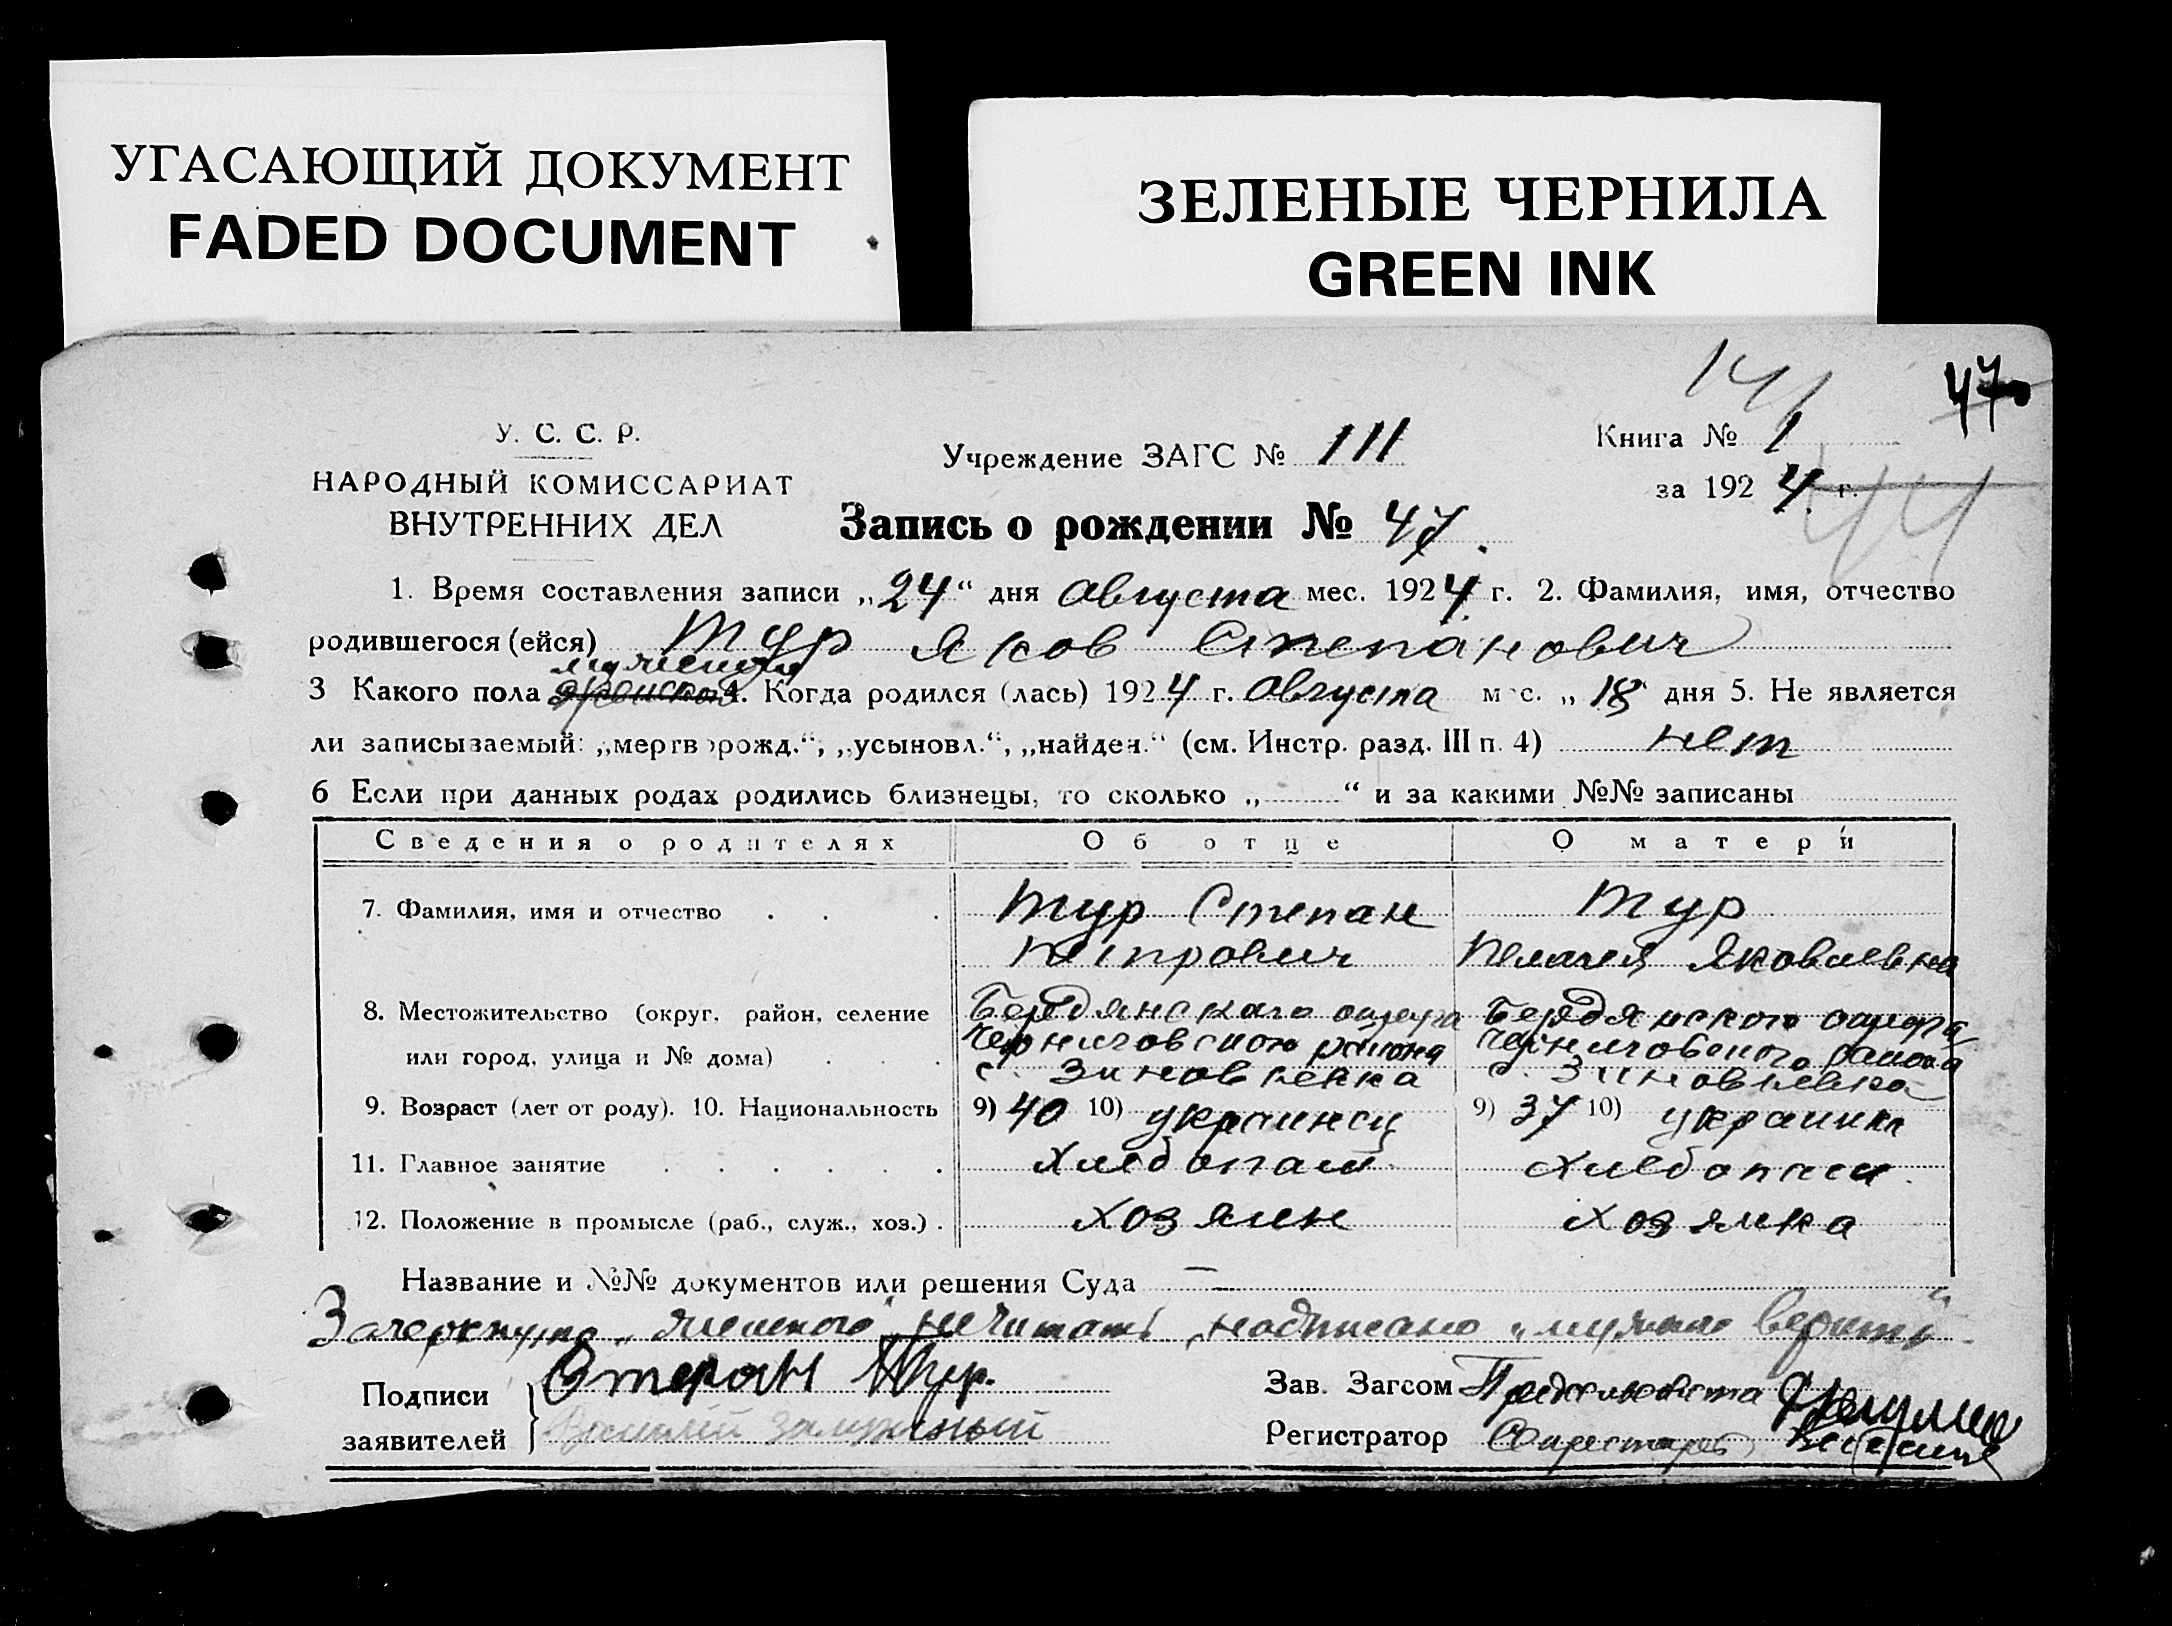 УГАСАЮЩИЙ ДОКУМЕНТ
FADED DOCUMENT
ЗЕЛЕНЫЕ ЧЕРНИЛА
GREEN INK
47
У. С. С. Р.
НАРОДНЫЙ КОМИССАРИАТ
ВНУТРЕННИХ ДЕЛ
Учреждение ЗАГС № 111
Книга № 1
за 1924 г.
44
Запись о рождении № 47.
1. Время составления записи „24“ дня Августа мес. 1924 г. 2. Фамилия, имя, отчество
родившегося (ейся) Тур Яков Степанович
мужской
3 Какого пола женской 4. Когда родился (лась) 1924 г. Августа мес. „18 дня 5. Не является
ли записываемый: „мертворожд.“, „усыновл.“, „найден.“ (см. Инстр. разд. III п. 4) нет
6 Если при данных родах родились близнецы, то сколько „ “ и за какими №№ записаны
Сведения о родителях Об отце О матери
7. Фамилия, имя и отчество Тур Степан Тур
Петрович Пелагея Яковлевна
8. Местожительство (округ, район, селение Бердянскаго округа Бердянского округа
или город, улица и № дома) Черниговского района Черниговского района
с. Зиновьевка с. Зиновьевка
9. Возраст (лет от роду). 10. Национальность 9) 40 10) украинец 9) 37 10) украинка
11. Главное занятие Хлебопаш. Хлебопаш.
12. Положение в промысле (раб., служ., хоз.) хозяин хозяйка
Название и №№ документов или решения Суда —
Зачеркнуто „женского нечитать, надписано „мужско верить“
Подписи заявителей Степан Тур.
Василий Залужный
Зав. Загсом Предсельсовета
Регистратор Секретарь